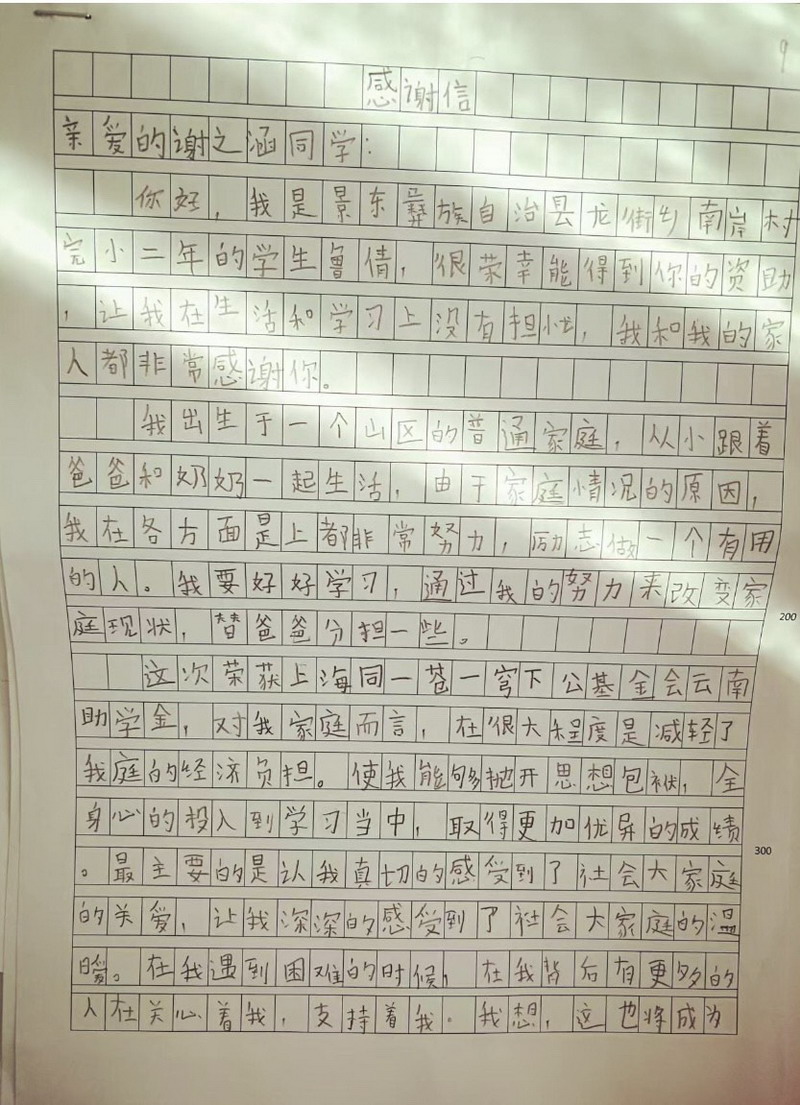 9
感谢信
亲爱的谢之涵同学：
你好，我是景东彝族自治县龙街乡南岸村
完小二年的学生鲁倩，很荣幸能得到你的资助
，让我在生活和学习上没有担忧，我和我的家
人都非常感谢你。
我出生于一个山区的普通家庭，从小跟着
爸爸和奶奶一起生活，由于家庭情况的原因，
我在各方面是上都非常努力，励志做一个有用
的人。我要好好学习，通过我的努力来改变家
庭现状，替爸爸分担一些。
200
这次荣获上海同一苍一穹下公基金会云南
助学金，对我家庭而言，在很大程度是减轻了
我庭的经济负担。使我能够抛开思想包袱，全
身心的投入到学习当中，取得更加优异的成绩
300
。最主要的是认我真切的感受到了社会大家庭
的关爱，让我深深的感受到了社会大家庭的温
暖。在我遇到困难的时候，在我背后有更多的
人在关心着我，支持着我。我想，这也将成为